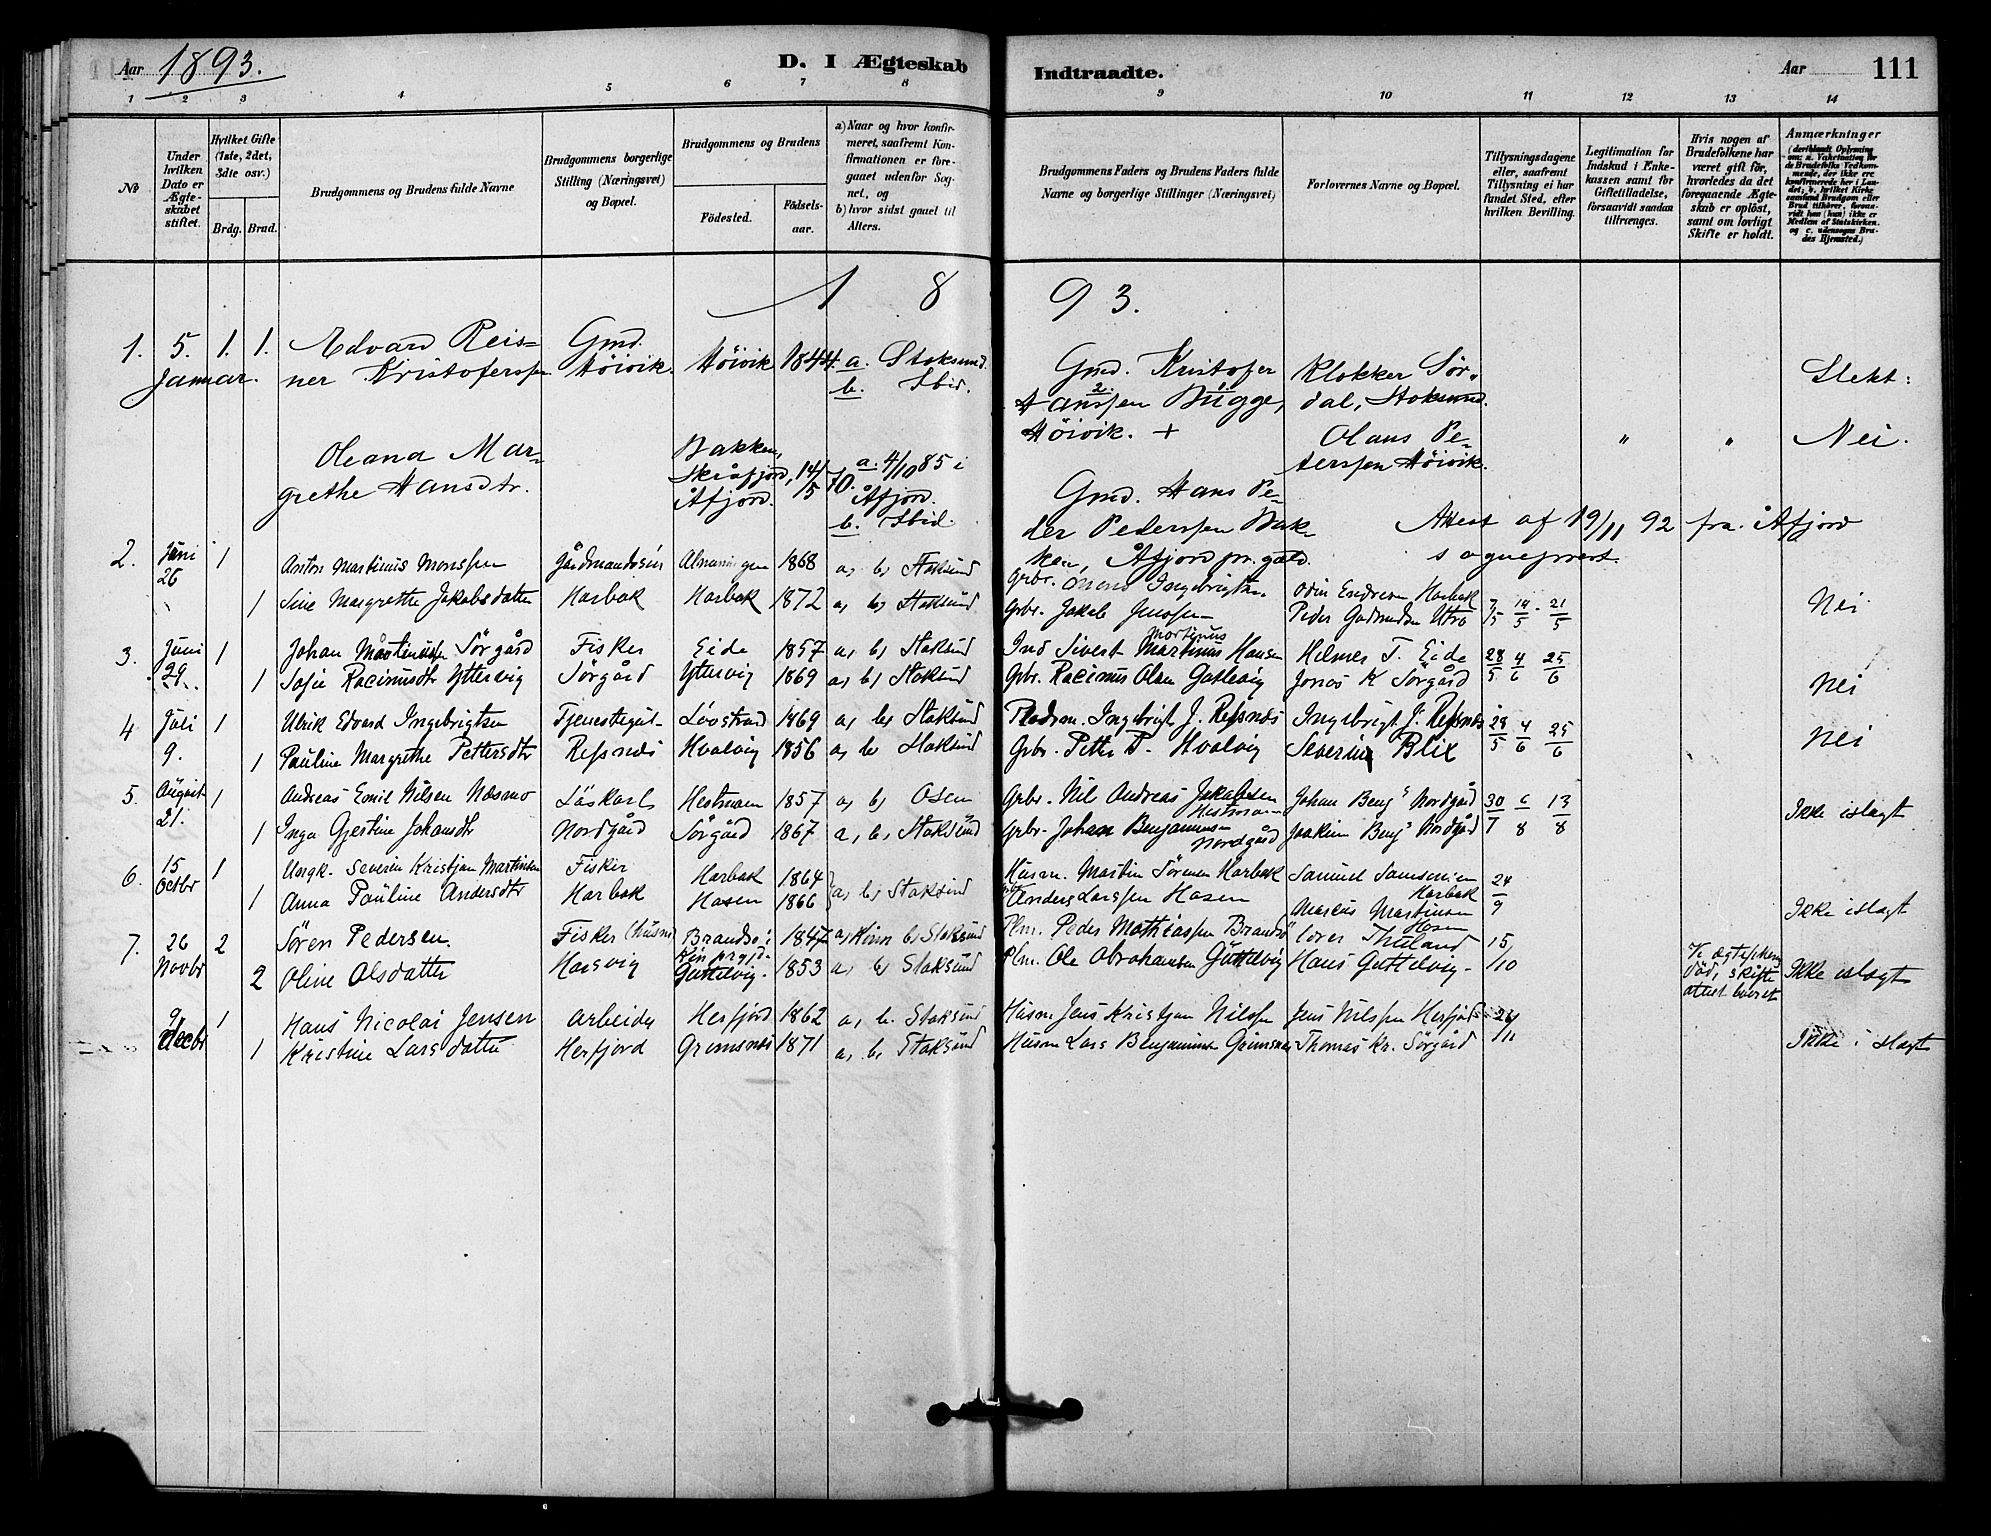 Aar 1893.
D. I Ægteskab
Indtraadte.
Aar
111
1 2 3 4 5 6 7 8 9 10 11 12 13 14
No
Under hvilken Dato er Ægteskabet stiftet.
Hvilket Gifte (1ste, 2det, 3die osv.)
Brdg. Brud.
Brudgommens og Brudens fulde Navne
Brudgommens borgerlige Stilling (Næringsvei) og Bopæl.
Brudgommens og Brudens
Födested.
Födselsaar.
a) Naar og hvor konfirmeret, saafremt Konfirmationen er foregaaet udenfor Sognet, og
b) hvor sidst gaaet til Alters.
Brudgommens Faders og Brudens Faders fulde Navne og borgerlige Stillinger (Næringsvei)
Forlovernes Navne og Bopæl.
Tillysningsdagene eller, saafremt Tillysning ei har fundet Sted, efter hvilken Bevilling.
Legitimation for Indskud i Enkekassen samt for Giftetilladelse, forsaavidt saadan tiltrænges.
Hvis nogen af Brudefolkene har været gift för, hvorledes da det foregaaende Ægteskab er oplöst, samt om lovligt Skifte er holdt.
Anmærkninger
1 8 93.
1. 5. Januar. 1. 1. Edvard Reisner Kristoferssen Gmd. Höivik. Höivik 1844. a. Stoksund. b. Ibid. Gmd. Kristofer Hanssen Bügge, Höivik. + Klokker Sördal, Stoksund. Slekt:
Oleana Margrethe Hansdtr. Bakken, Skråfjord, Åfjord. 14/5 70. a. 4/10 85 i Åfjord. b. Ibid. Gmd. Hans Peder Pederssen Bakken, Åfjord pr.gæld. Olaus Peterssen Höivik. " " Nei.
Attest af 19/11 92 fra Åfjord sogneprest.
2. Juni 26 1 Anton Martinus Monssen Gårdmandssön Almenningen 1868 a, b, Stoksund Grbr. Mons Ingebrigtsen Odin Endresen Harbak
1 Sine Margrethe Jakobsdatter Harbak Harbak 1872 a, b, Stoksund Grbr. Jakob Jenssen Peder Gudmundsen Utro 7/5 14/5 21/5 Nei
3. Juni 29 1 Johan Martinussen Sörgård Fisker Eide 1857 a, b, Stoksund Ind Sivert Martinus Hansen Helmer T. Eide 28/5 4/6 25/6
1 Sofie Racinusdtr Yttervig Sörgård Yttervig 1869 a, b, Stoksund Grbr. Racinus Olsen Gutlevig Jonas K Sörgård Nei
4 Juli 9. 1 Ulrik Edvard Ingebrigtsen Tjenestegut Lövstrand 1869 a, b, Stoksund Pladsm. Ingebrigt J. Refsnes Ingebrigt J. Refsnes 28/5 4/6 25/6
1 Pauline Margrethe Pettersdtr Refsnes Hvalvig 1856 a, b, Stoksund Grbr. Petter P. Hvalvig Severin Blix Nei
5. August 21. 1 Andreas Emil Nilsen Næsmo Löskarl Hestmoen 1857 a, b, Osen Grbr. Nils Andreas Jakobsen Hestmoen Johan Benj's Nordgård 30/7 6/8 13/8
1 Inga Gjertine Johansdtr Nordgård Sörgård 1867 a, b, Stoksund Grbr. Johan Benjaminsen Nordgård Joakim Benj's Nordgård Ikke islagt
6. 15 Octbr 1 Ungk. Severin Kristjan Martinsen Fisker Harbak 1864 a, b, Stoksund Husm. Martin Sörensen Harbak Samuel Samsonsen Harbak 24/9
1 Anna Pauline Andersdtr Harbak Hosen 1866 Anders Larssen Hosen Marcus Martinsen Hosen Ikke islagt
7. 26 Novbr 2 Sören Pedersen. Fisker (husm) Brandsö i Kin prgjd. 1847 a, Kinn b, Stoksund Plm. Peder Mathiassen Brandsö Thuland 15/10
2 Oline Olsdatter Harsvig Guttelvig. 1853 a, b, Stoksund Plm. Ole Abrahamsen Guttelvig Hans Guttelvig. Ikke islagt
9 decbr 1 Hans Nicolai Jensen Arbeider Herfjord 1862 a, b. Stoksund Husm Jens Kristjan Nilssen Jens Nilssen Herfjord 26/11
1 Kristine Larsdatter Herfjord Grimsnes 1871 a, b, Stoksund Husm Lars Benjaminsen Grimsnes Thomas Kr. Sörgård Ikke i slagt